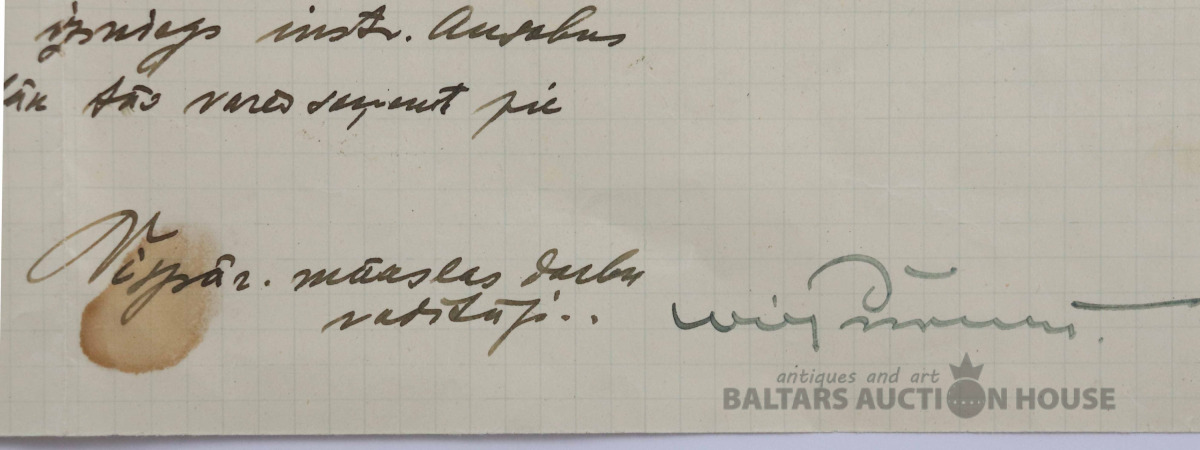 izsniegs instr. Ansebus
tās varēs saņemt pie
Vispār. mākslas darbu
vadītāji..
antiques and art
BALTARS AUCTION HOUSE